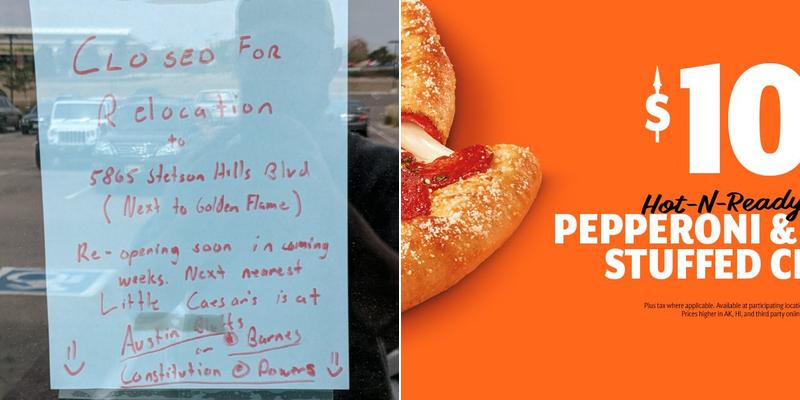 CLOSED FOR
Relocation
to
5865 Stetson Hills Blvd
(Next to Golden Flame)
Re-opening soon in coming
weeks. Next nearest
Little Caesar's is at
Austin Bluffs
@ Barnes
or
Constitution @ Powers
$10
Hot-N-Ready
PEPPERONI &
STUFFED
Plus tax where applicable. Available at participating
Prices higher in AK, HI, and third party